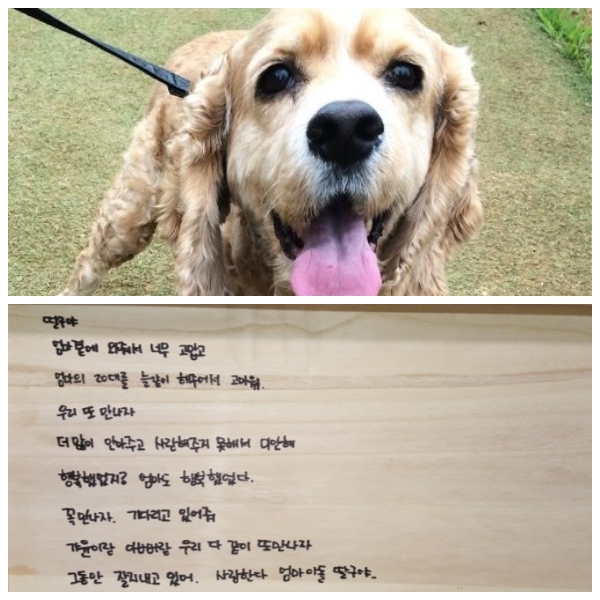 딸구야
엄마곁에 와줘서 너무 고맙고
엄마의 20대를 늘같이 해줘서 고마워.
우리 또 만나자
더 많이 안아주고 사랑해주지 못해서 미안해
행복했었지? 엄마도 행복했었다.
꼭 만나자. 기다리고 있어줘
가윤이랑 아빠랑 우리 다 같이 또만나자
그동안 잘지내고 있어. 사랑한다 엄마아들 딸구야..